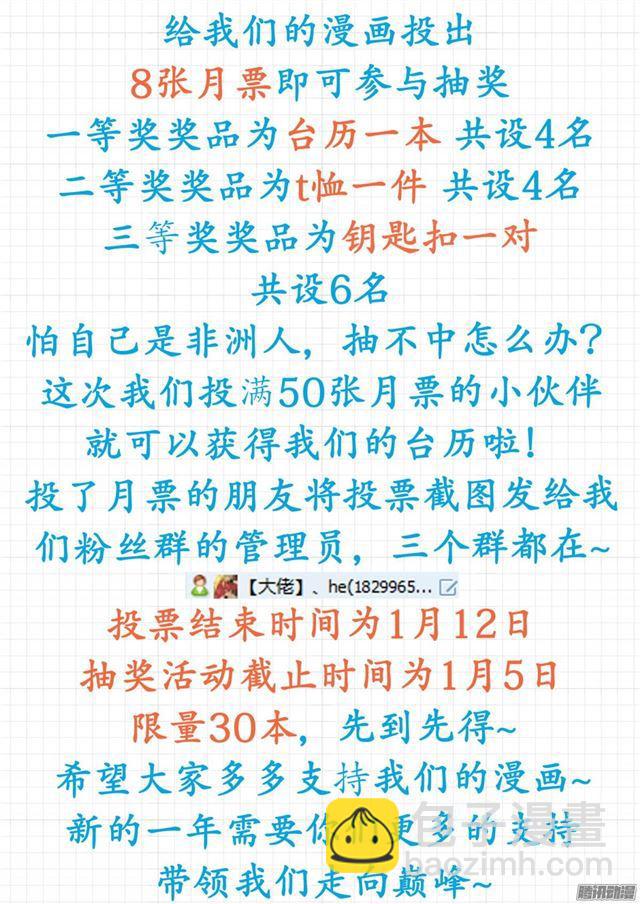 给我们的漫画投出
8张月票即可参与抽奖
一等奖奖品为台历一本 共设4名
二等奖奖品为t恤一件 共设4名
三等奖奖品为钥匙扣一对
共设6名
怕自己是非洲人，抽不中怎么办？
这次我们投满50张月票的小伙伴
就可以获得我们的台历啦！
投了月票的朋友将投票截图发给我
们粉丝群的管理员，三个群都在~
【大佬】、he(1829965...
投票结束时间为1月12日
抽奖活动截止时间为1月5日
限量30本，先到先得~
希望大家多多支持我们的漫画~
新的一年需要你们更多的支持
带领我们走向巅峰~
包子漫畫
baozimh.com
腾讯动漫